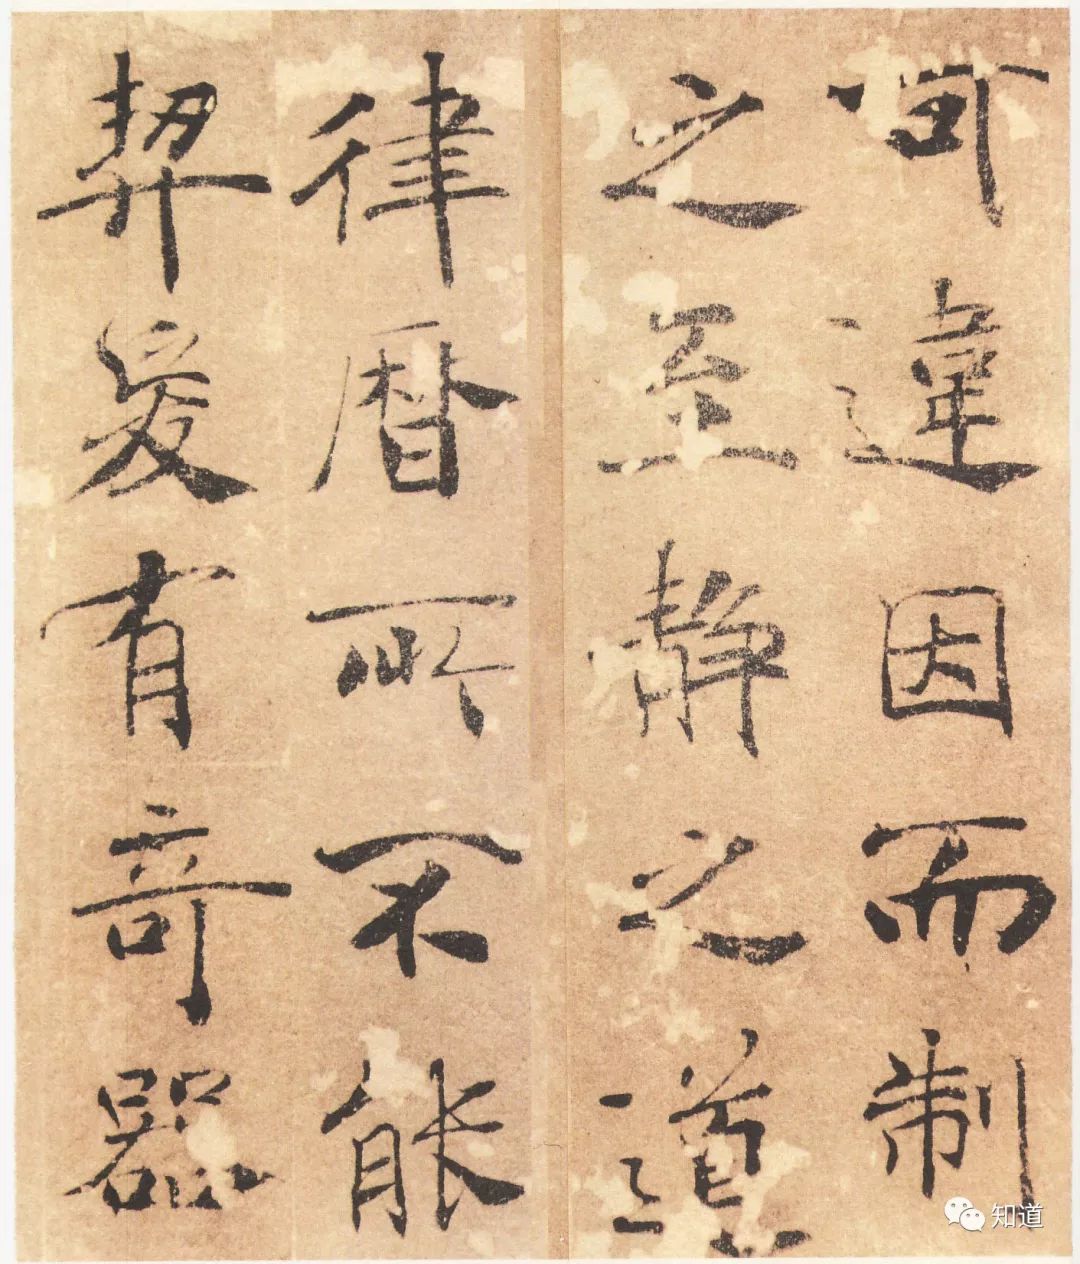 可違因而制
之至静之道
律曆所不能
契爰有奇器
知道